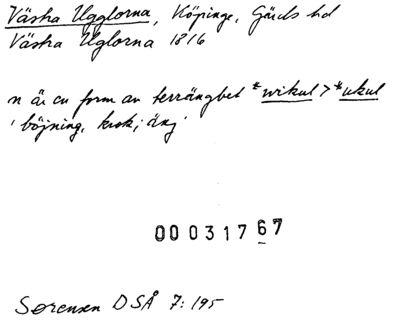 Västra Ugglorna, Köpinge, Gärds hd
Västra Uglorna 1816
n är en form av terrängbet *wikul > *ukul
'böjning, krok; äng'
00031767
Sørensen DSÅ 7: 195